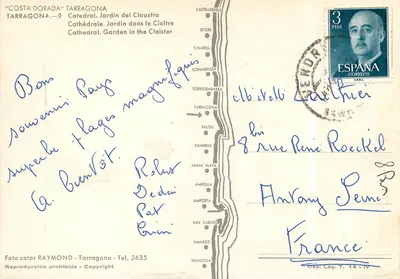 "COSTA DORADA" TARRAGONA
TARRAGONA.—9 Catedral. Jardin del Claustro
Cathédrale. Jardin dans le Cloître
Cathedral. Garden in the Cloister
Bons
souvenirs Pays
superbe plages magnifiques
A bientôt.
Robert
Dédée
Pat
Foto color RAYMOND - Tarragona - Tel. 2635
Reproducción prohibida - Copyright
CASTELLDEFELS
SITGES
CALAFELL
COMARRUGA
TORREDEMBARRA
TARRAGONA
SALOU
CAMBRILS
MIAMI PLAYA
AMPOLLA
AMPOSTA
SAN CARLOS
VINAROZ
PEÑISCOLA
3
PTAS
ESPAÑA
CORREOS
VENDR
8 bis
8 rue René Roeckel
Antony Seine
France
Dep. Leg. T. 14-IV